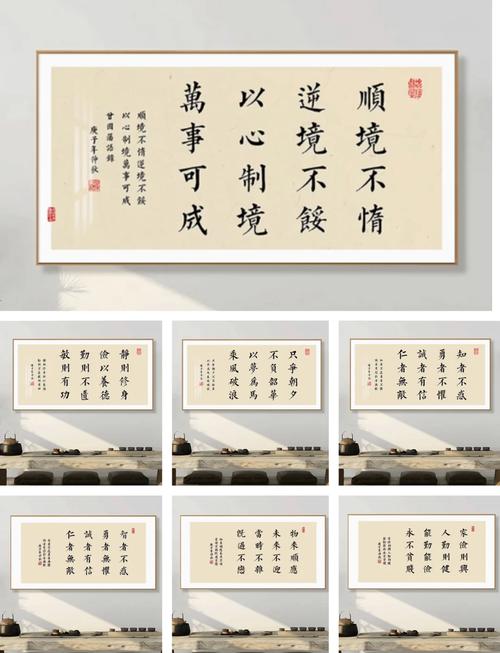 順境不惰
逆境不餒
以心制境
萬事可成
順境不惰逆境不餒
以心制境萬事可成
曾國藩語錄
庚子年仲秋
靜則修身
儉以養德
勤則不匱
敏則有功
只爭朝夕
不負韶華
以夢為馬
乘風破浪
知者不惑
勇者不懼
誠者有信
仁者無敵
智者不惑
勇者不懼
誠者有信
仁者無敵
物來順應
未來不迎
當時不雜
既過不戀
家儉則興
人勤則健
能勤能儉
永不貧賤